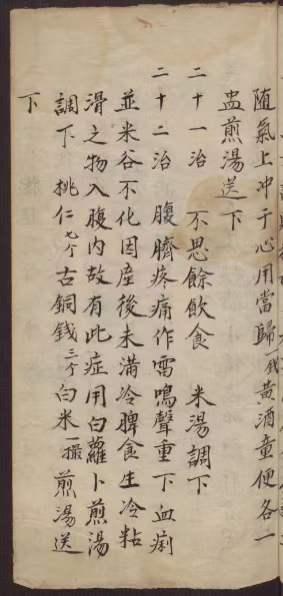 随氣上冲于心用當歸一錢黄酒童便各一
盅煎湯送下
二十一治 不思餘飲食 米湯調下
二十二治 腹臍疼痛作雷鳴聲重下血痢
並米谷不化因産後未滿冷脾食生冷粘
滑之物入腹内故有此症用白蘿卜煎湯
調下 桃仁七个古銅錢三个白米一撮煎湯送
下